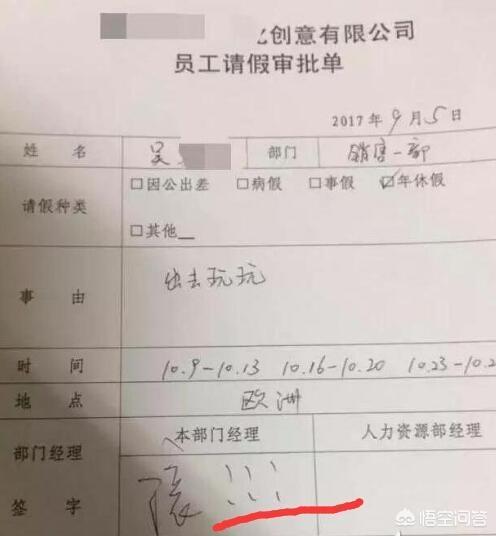 创意有限公司
员工请假审批单
2017年9月5日
姓 名 吴 部门 销售一部
请假种类 □因公出差 □病假 □事假 ☑年休假
□其他__
事 由 出去玩玩
时 间 10.9-10.13 10.16-10.20 10.23-10.2
地 点 欧洲
部门经理 本部门经理 人力资源部经理
签 字 张!!!
悟空问答